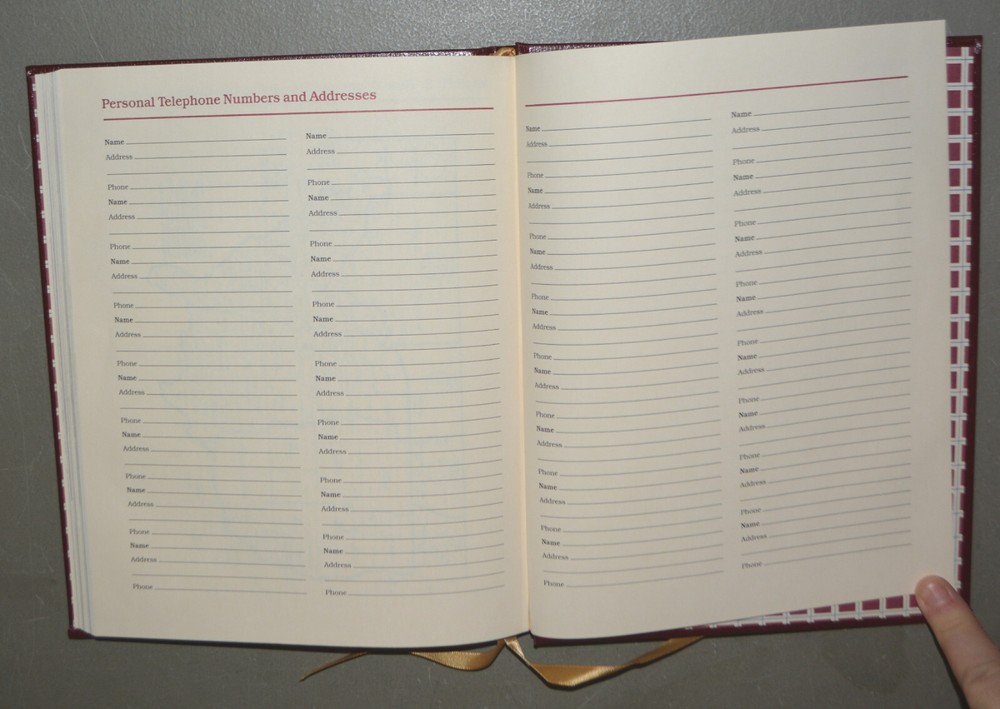 Personal Telephone Numbers and Addresses
Name
Address
Phone
Name
Address
Phone
Name
Address
Phone
Name
Address
Phone
Name
Address
Phone
Name
Address
Phone
Name
Address
Phone
Name
Address
Phone
Name
Address
Phone
Name
Address
Phone
Name
Address
Phone
Name
Address
Phone
Name
Address
Phone
Name
Address
Phone
Name
Address
Phone
Name
Address
Phone
Name
Address
Phone
Name
Address
Phone
Name
Address
Phone
Name
Address
Phone
Name
Address
Phone
Name
Address
Phone
Name
Address
Phone
Name
Address
Phone
Name
Address
Phone
Name
Address
Phone
Name
Address
Phone
Name
Address
Phone
Name
Address
Phone
Name
Address
Phone
Name
Address
Phone
Name
Address
Phone